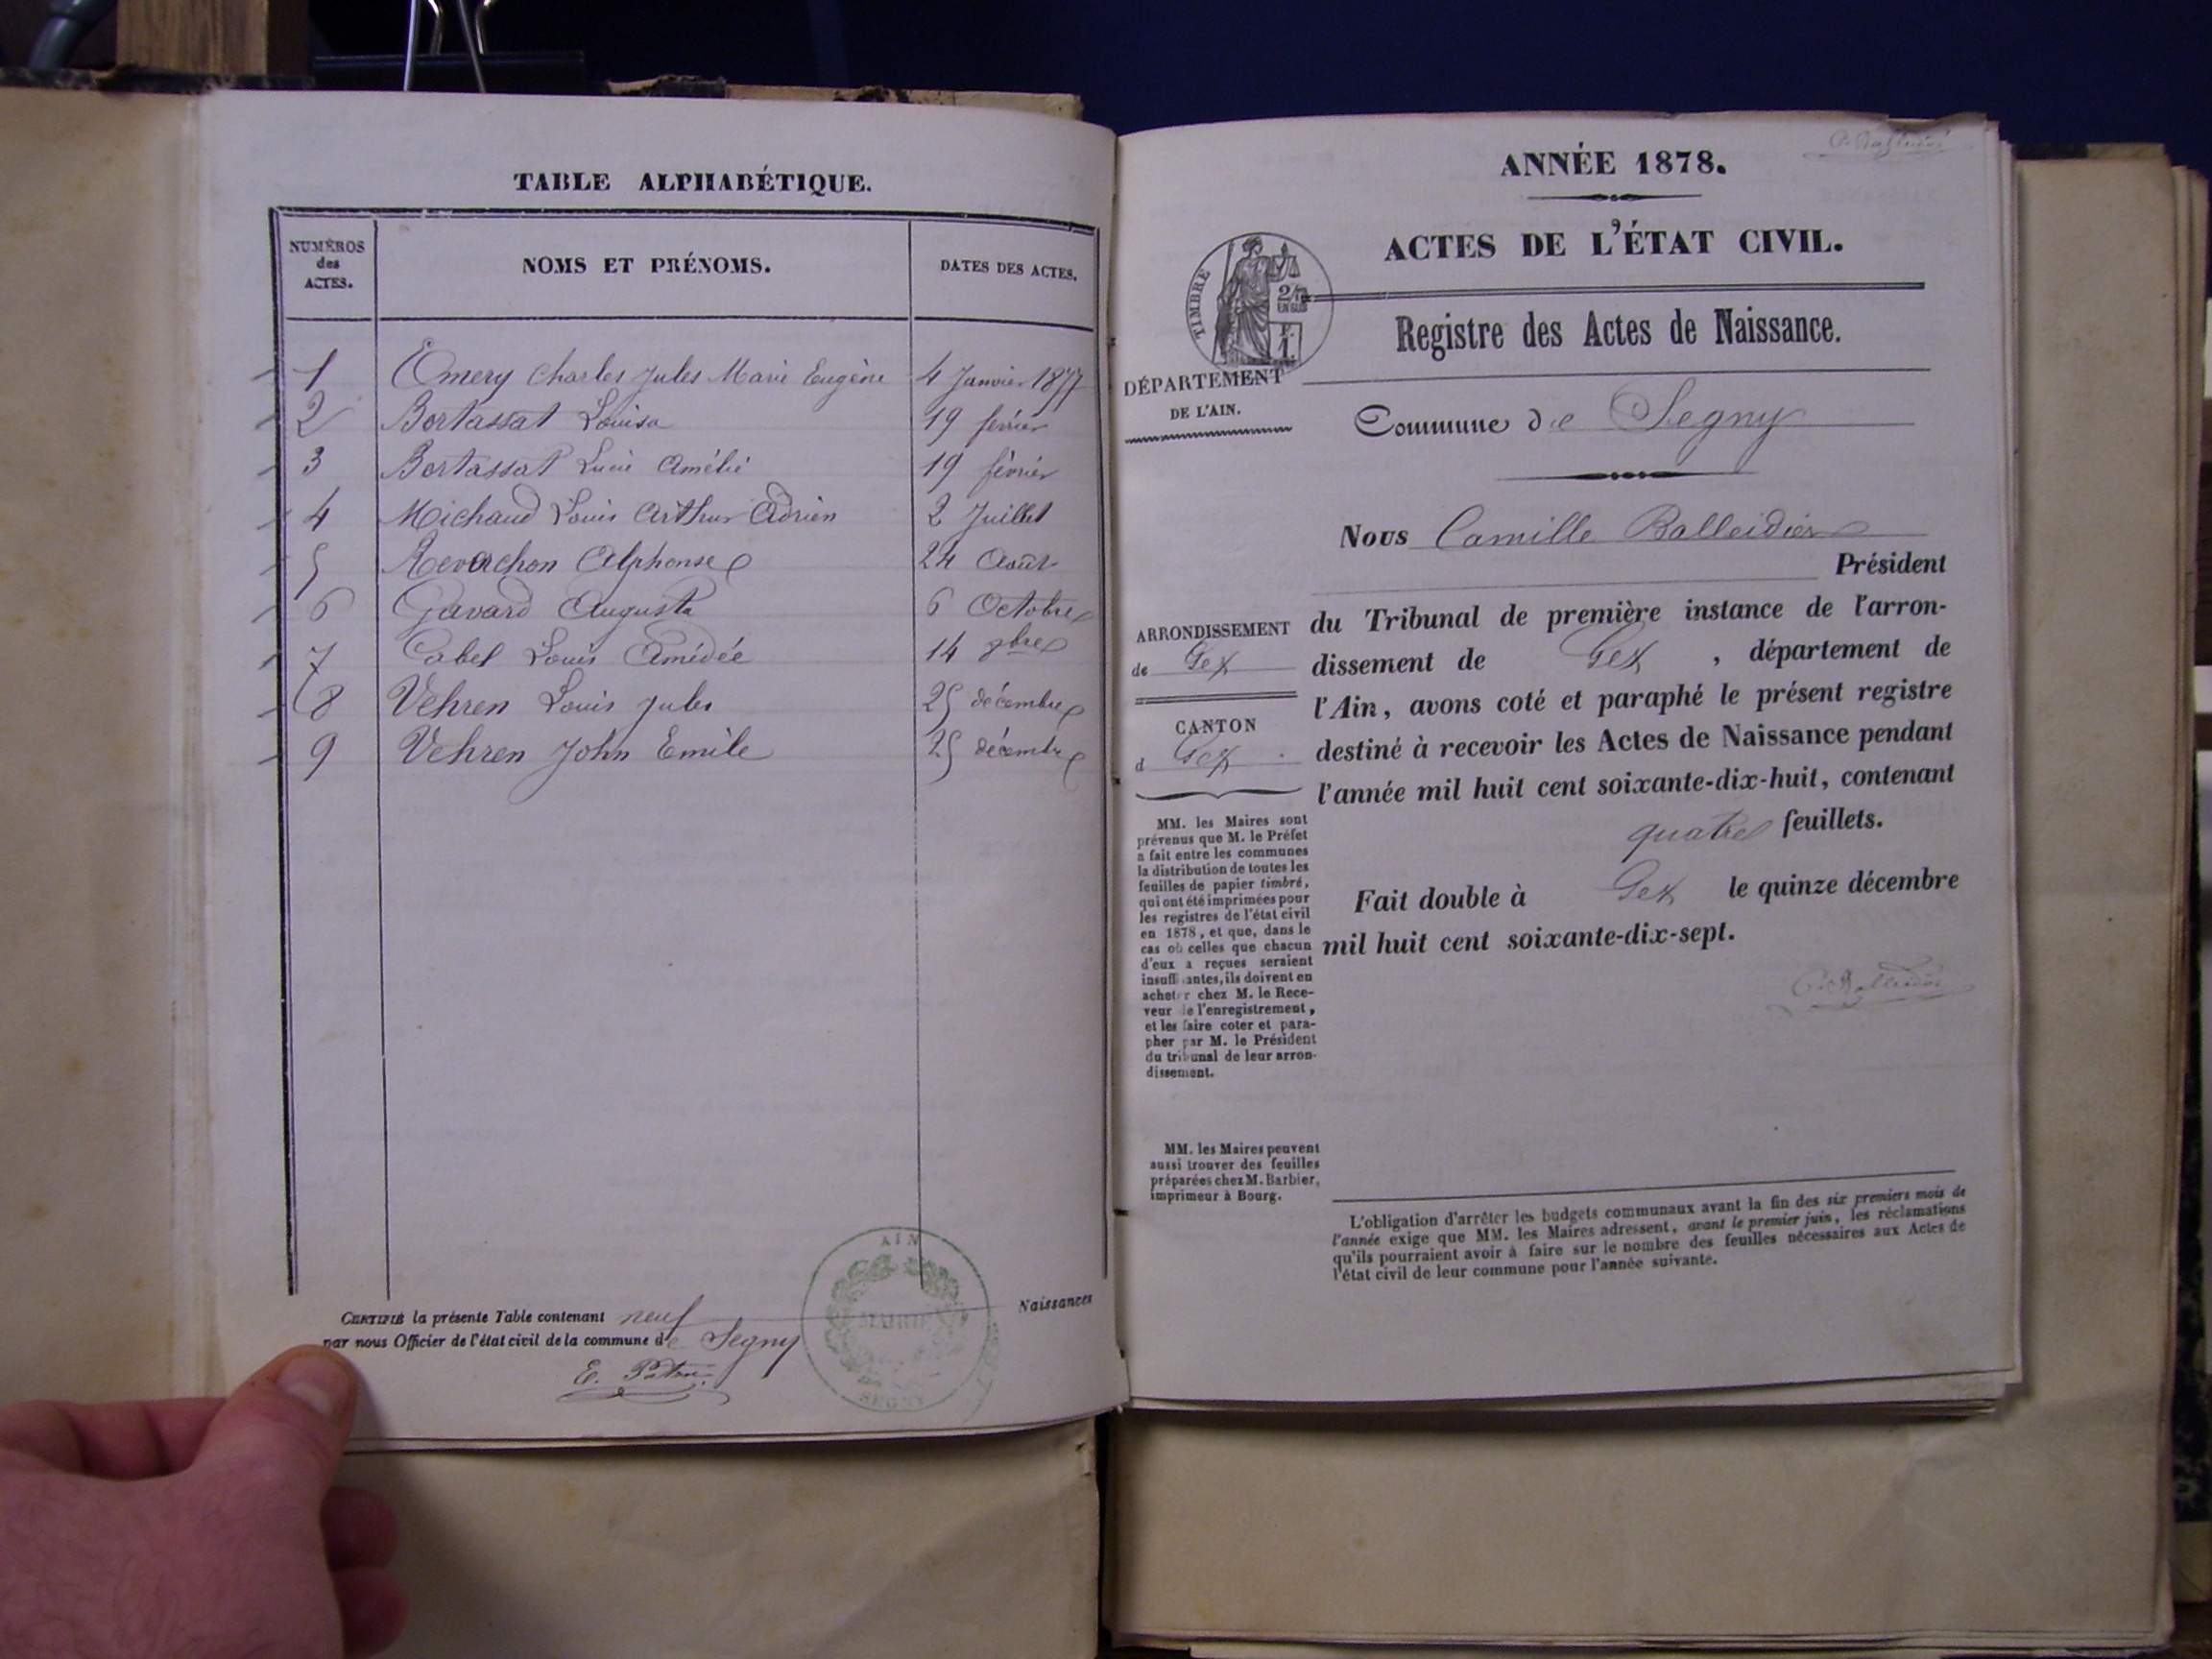 TABLE ALPHABÉTIQUE.
NUMÉROS
des
ACTES.
NOMS ET PRÉNOMS.
DATES DES ACTES.
1 Emery Charles Jules Marie Eugène 4 Janvier 1877
2 Bertassat Louisa 19 février
3 Bertassat Lucie Amélie 19 février
4 Michaud Louis Arthur Adrien 2 Juillet
5 Revachon Alphonse 24 Août
6 Gavard Augusta 6 Octobre
7 Cabel Louis Amédée 14 9bre
8 Vehren Louis Jules 25 décembre
9 Vehren John Emile 25 décembre
CERTIFIÉ la présente Table contenant neuf Naissances
par nous Officier de l'état civil de la commune de Segny
AIN
MAIRIE
SEGNY
ANNÉE 1878.
ACTES DE L'ÉTAT CIVIL.
TIMBRE
Registre des Actes de Naissance.
DÉPARTEMENT
DE L'AIN.
Commune de Segny
Nous Camille Balleidier
Président
ARRONDISSEMENT
de Gex
CANTON
d Gex
du Tribunal de première instance de l'arron-
dissement de Gex, département de
l'Ain, avons coté et paraphé le présent registre
destiné à recevoir les Actes de Naissance pendant
l'année mil huit cent soixante-dix-huit, contenant
quatre feuillets.
Fait double à Gex le quinze décembre
mil huit cent soixante-dix-sept.
MM. les Maires sont
prévenus que M. le Préfet
a fait entre les communes
la distribution de toutes les
feuilles de papier timbré,
qui ont été imprimées pour
les registres de l'état civil
en 1878, et que, dans le
cas où celles que chacun
d'eux a reçues seraient
insuffisantes, ils doivent en
acheter chez M. le Rece-
veur de l'enregistrement,
et les faire coter et para-
pher par M. le Président
du tribunal de leur arron-
dissement.
MM. les Maires peuvent
aussi trouver des feuilles
préparées chez M. Barbier,
imprimeur à Bourg.
L'obligation d'arrêter les budgets communaux avant la fin des six premiers mois de
l'année exige que MM. les Maires adressent, avant le premier juin, les réclamations
qu'ils pourraient avoir à faire sur le nombre des feuilles nécessaires aux Actes de
l'état civil de leur commune pour l'année suivante.